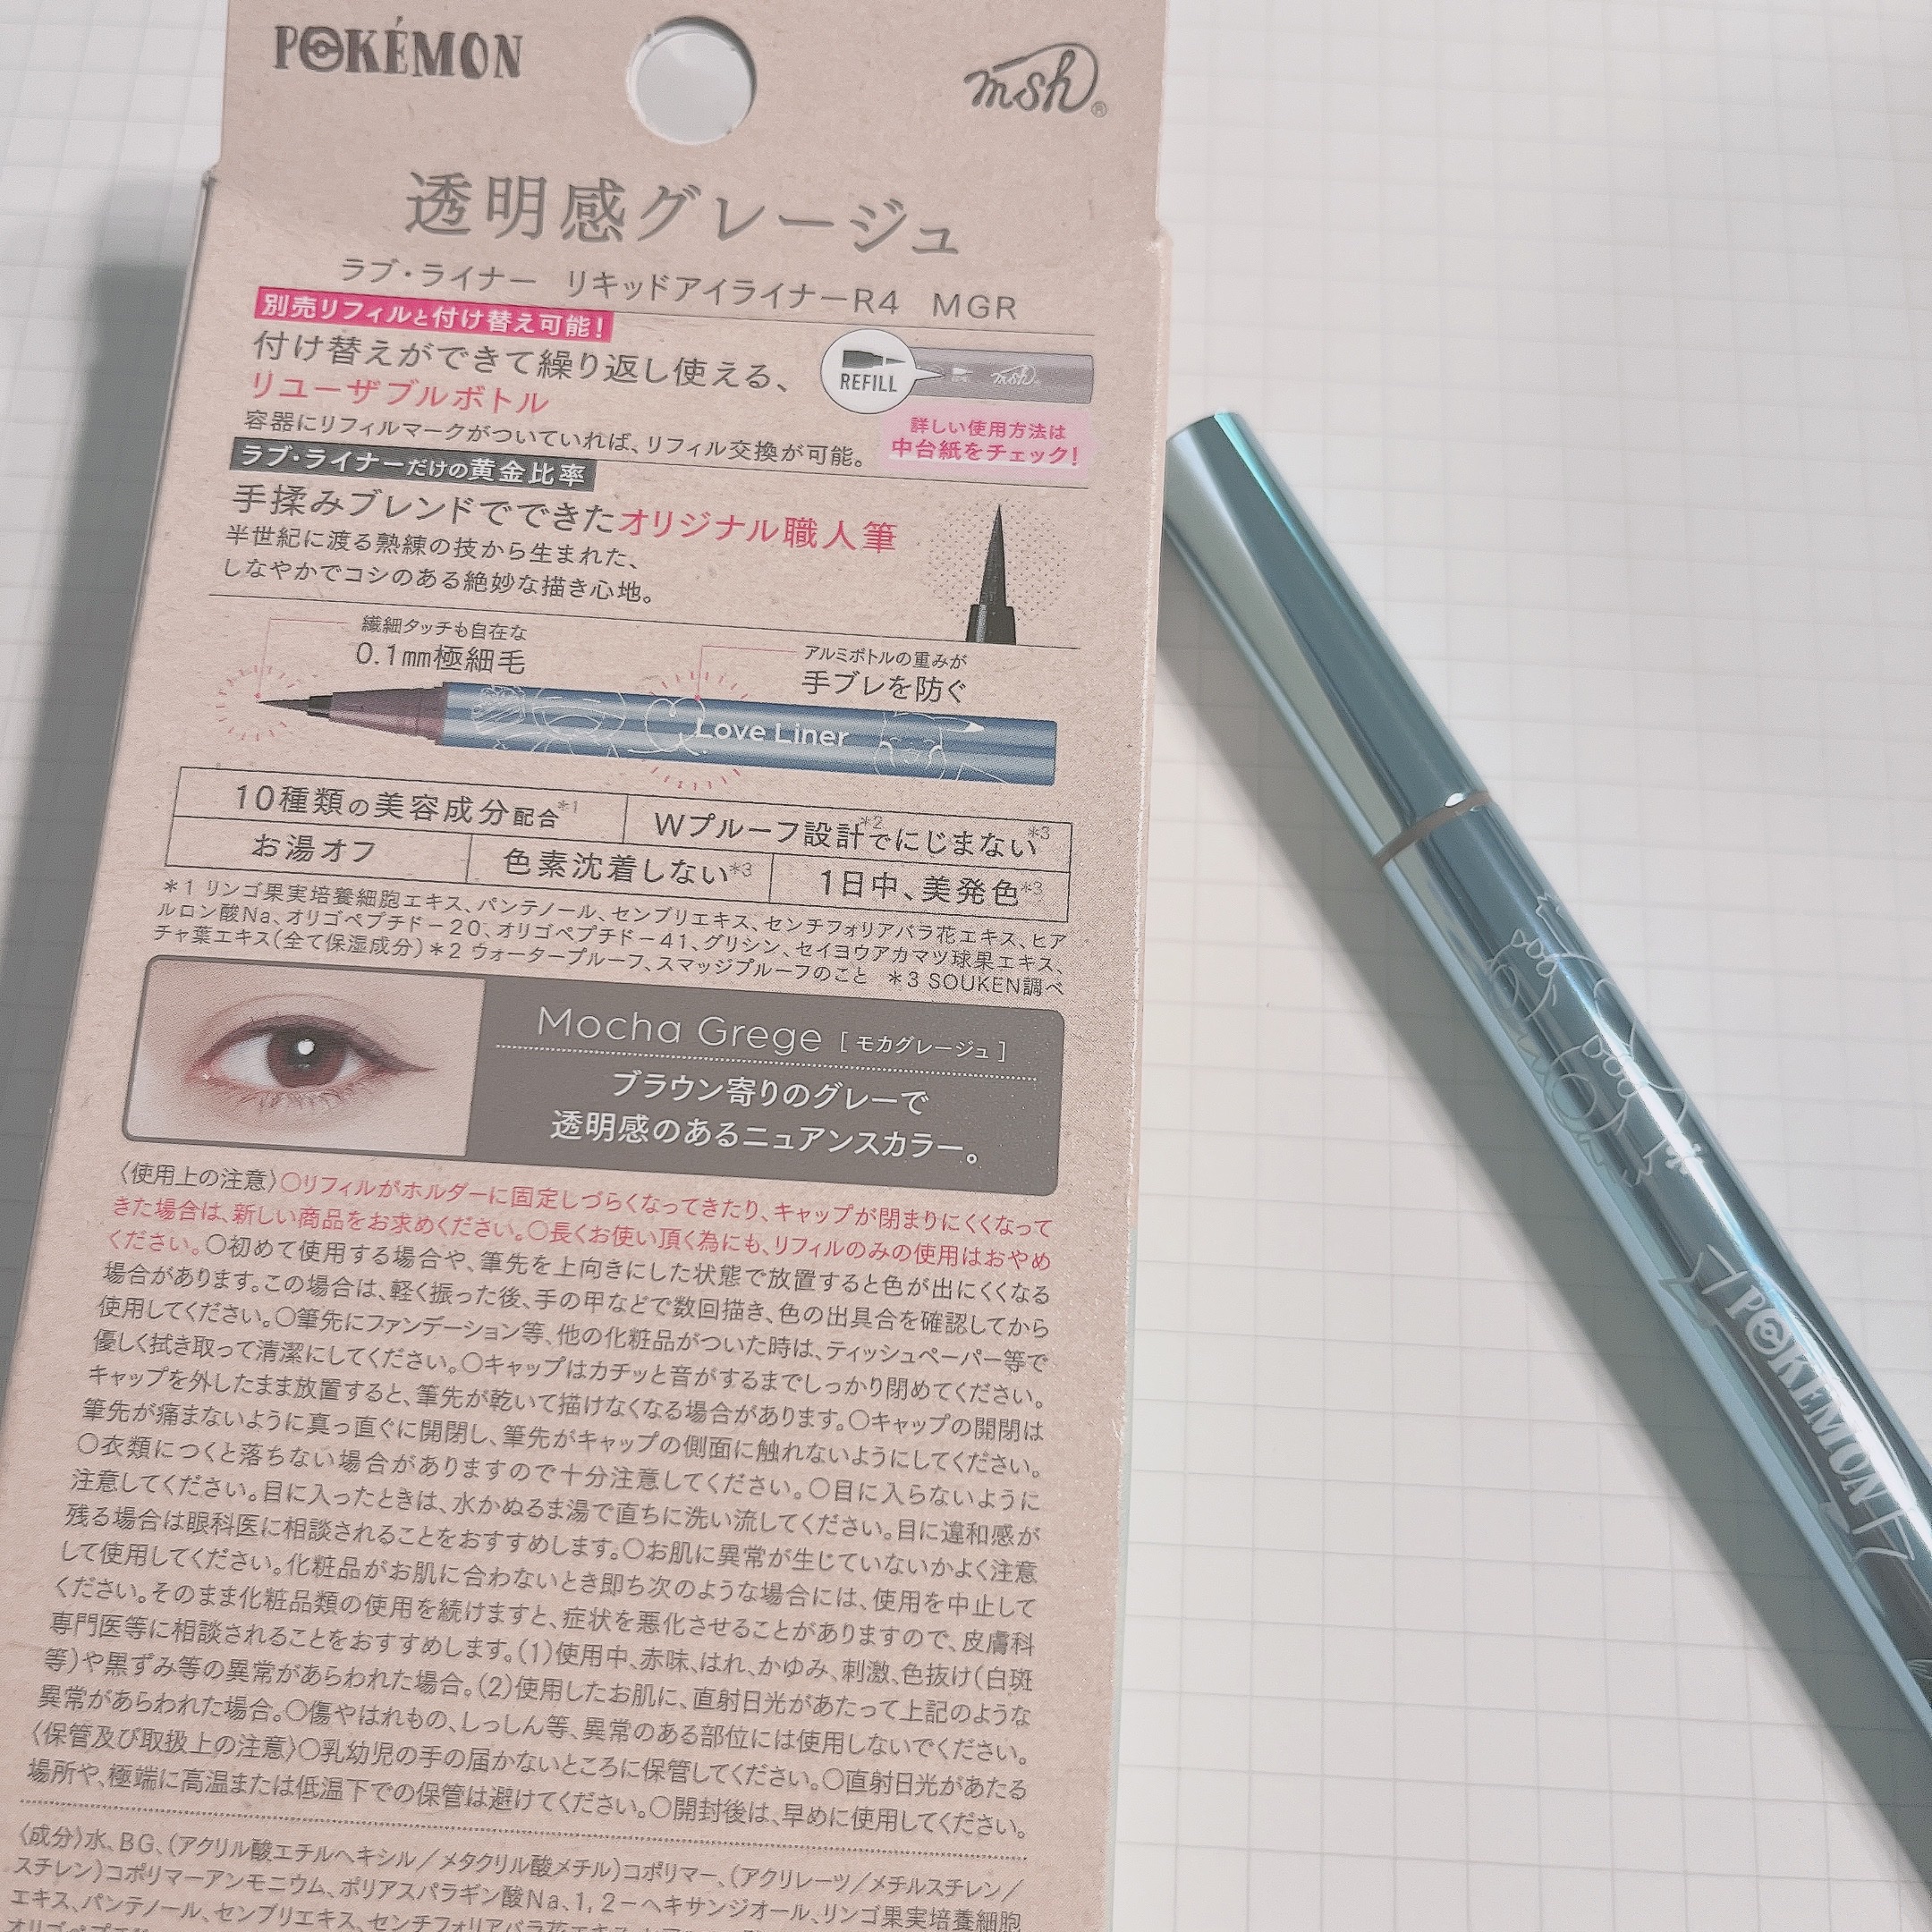 POKÉMON
msh®
透明感グレージュ
ラブ・ライナー リキッドアイライナーR4 MGR
別売リフィルと付け替え可能！
付け替えができて繰り返し使える、
リユーザブルボトル
容器にリフィルマークがついていれば、リフィル交換が可能。
REFILL
msh
詳しい使用方法は
中台紙をチェック！
ラブ・ライナーだけの黄金比率
手揉みブレンドでできたオリジナル職人筆
半世紀に渡る熟練の技から生まれた、
しなやかでコシのある絶妙な描き心地。
繊細タッチも自在な
0.1mm極細毛
アルミボトルの重みが
手ブレを防ぐ
Love Liner
10種類の美容成分配合*1
Wプルーフ設計*2でにじまない*3
お湯オフ
色素沈着しない*3
1日中、美発色*3
*1 リンゴ果実培養細胞エキス、パンテノール、センブリエキス、センチフォリアバラ花エキス、ヒア
ルロン酸Na、オリゴペプチド－20、オリゴペプチド－41、グリシン、セイヨウアカマツ球果エキス、
チャ葉エキス(全て保湿成分) *2 ウォータープルーフ、スマッジプルーフのこと *3 SOUKEN調べ
Mocha Grege [モカグレージュ]
ブラウン寄りのグレーで
透明感のあるニュアンスカラー。
〈使用上の注意〉○リフィルがホルダーに固定しづらくなってきたり、キャップが閉まりにくくなって
きた場合は、新しい商品をお求めください。○長くお使い頂く為にも、リフィルのみの使用はおやめ
ください。○初めて使用する場合や、筆先を上向きにした状態で放置すると色が出にくくなる
場合があります。この場合は、軽く振った後、手の甲などで数回描き、色の出具合を確認してから
使用してください。○筆先にファンデーション等、他の化粧品がついた時は、ティッシュペーパー等で
優しく拭き取って清潔にしてください。○キャップはカチッと音がするまでしっかり閉めてください。
キャップを外したまま放置すると、筆先が乾いて描けなくなる場合があります。○キャップの開閉は
筆先が痛まないように真っ直ぐに開閉し、筆先がキャップの側面に触れないようにしてください。
○衣類につくと落ちない場合がありますので十分注意してください。○目に入らないように
注意してください。目に入ったときは、水かぬるま湯で直ちに洗い流してください。目に違和感が
残る場合は眼科医に相談されることをおすすめします。○お肌に異常が生じていないかよく注意
して使用してください。化粧品がお肌に合わないとき即ち次のような場合には、使用を中止して
ください。そのまま化粧品類の使用を続けますと、症状を悪化させることがありますので、皮膚科
専門医等に相談されることをおすすめします。(1)使用中、赤味、はれ、かゆみ、刺激、色抜け(白斑
等)や黒ずみ等の異常があらわれた場合。(2)使用したお肌に、直射日光があたって上記のような
異常があらわれた場合。○傷やはれもの、しっしん等、異常のある部位には使用しないでください。
〈保管及び取扱上の注意〉○乳幼児の手の届かないところに保管してください。○直射日光があたる
場所や、極端に高温または低温下での保管は避けてください。○開封後は、早めに使用してください。
〈成分〉水、BG、(アクリル酸エチルヘキシル／メタクリル酸メチル)コポリマー、(アクリレーツ／メチルスチレン／
スチレン)コポリマーアンモニウム、ポリアスパラギン酸Na、1,2－ヘキサンジオール、リンゴ果実培養細胞
エキス、パンテノール、センブリエキス、センチフォリアバラ花エキス、
POKÉMON